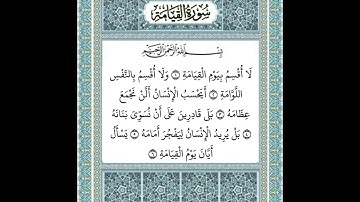 سُورَةُ القِيَامَةِ
بِسْمِ اللَّهِ الرَّحْمَنِ الرَّحِيمِ
لَا أُقْسِمُ بِيَوْمِ الْقِيَامَةِ ۝١ وَلَا أُقْسِمُ بِالنَّفْسِ
اللَّوَّامَةِ ۝٢ أَيَحْسَبُ الْإِنْسَانُ أَلَّنْ نَجْمَعَ
عِظَامَهُ ۝٣ بَلَى قَادِرِينَ عَلَى أَنْ نُسَوِّيَ بَنَانَهُ
۝٤ بَلْ يُرِيدُ الْإِنْسَانُ لِيَفْجُرَ أَمَامَهُ ۝٥ يَسْأَلُ
أَيَّانَ يَوْمُ الْقِيَامَةِ ۝٦